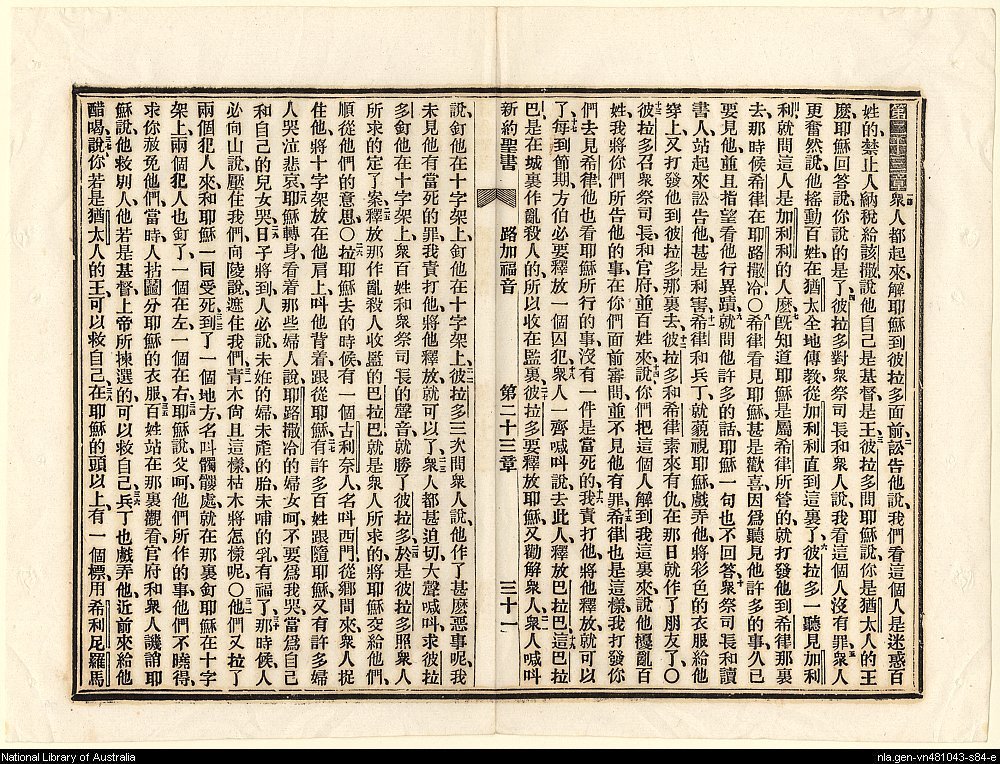 第二十三章衆人都起來、解耶穌到彼拉多面前、訟告他說、我們看這個人是迷惑百
姓的、禁止人納稅給該撒、說他自己是基督、是王、彼拉多問耶穌說、你是猶太人的王
麼、耶穌回答說、你說的是了、彼拉多對衆祭司長和衆人說、我看這個人沒有罪、衆人
更奮然說、他搖動百姓、在猶太全地傳教、從加利利直到這裏了、彼拉多一聽見加利
利、就問這人是加利利的人麼、旣知道耶穌是屬希律所管的、就打發他到希律那裏
去、那時候希律在耶路撒冷、〇希律看見耶穌、甚是歡喜、因爲聽見他許多的事、久已
要見他、並且指望看他行異蹟、就問他許多的話、耶穌一句也不回答、衆祭司長和讀
書人站起來、訟告他甚是利害、希律和兵丁就藐視耶穌、戲弄他、將彩色的衣服給他
穿上、又打發他到彼拉多那裏去、彼拉多和希律素來有仇、在那日就作了朋友了、〇
彼拉多召衆祭司長和官府並百姓來、說、你們把這個人解到我這裏來、說他擾亂百
姓、我將你們所告他的事、在你們面前審問、並不見他有罪、希律也是這樣、我打發你
們去見希律、他也看耶穌所行的事、沒有一件是當死的、我責打他、將他釋放就可以
了、每到節期、方伯必要釋放一個囚犯、衆人一齊喊叫說、去此人、釋放巴拉巴、這巴拉
巴是在城裏作亂殺人的、所以收在監裏、彼拉多要釋放耶穌、又勸解衆人、衆人喊叫
新約聖書 路加福音 第二十三章 三十一
說、釘他在十字架上、釘他在十字架上、彼拉多三次問衆人說、他作了甚麼惡事呢、我
未見他有當死的罪、我責打他、將他釋放就可以了、衆人都甚迫切、大聲喊叫、求彼拉
多釘他在十字架上、衆百姓和衆祭司長的聲音就勝了彼拉多、於是彼拉多照衆人
所求的定了案、釋放那作亂殺人收監的巴拉巴、就是衆人所求的、將耶穌交給他們、
順從他們的意思、〇拉耶穌去的時候、有一個古利奈人、名叫西門、從鄉間來、衆人捉
住他、將十字架放在他肩上、叫他背着跟從耶穌、有許多百姓跟隨耶穌、又有許多婦
人哭泣悲哀、耶穌轉身看着那些婦人說、耶路撒冷的婦女呵、不要爲我哭、當爲自己
和自己的兒女哭、日子將到、人必說、未姙的婦、未產的胎、未哺的乳、有福了、那時候、人
必向山說、壓住我們、向陵說、遮住我們、青木尙且這樣、枯木將怎樣呢、〇他們又拉了
兩個犯人來、和耶穌一同受死、到了一個地方、名叫髑髏處、就在那裏釘耶穌在十字
架上、兩個犯人也釘了、一個在左、一個在右、耶穌說、父呵、他們所作的事、他們不曉得、
求你赦免他們、當時人拈鬮分耶穌的衣服、百姓站在那裏觀看、官府和衆人譏誚耶
穌說、他救別人、他若是基督、上帝所揀選的、可以救自己、兵丁也戲弄他、近前來給他
醋喝、說、你若是猶太人的王、可以救自己、在耶穌的頭以上、有一個標、用希利尼羅馬
National Library of Australia
nla.gen-vn481043-s84-e